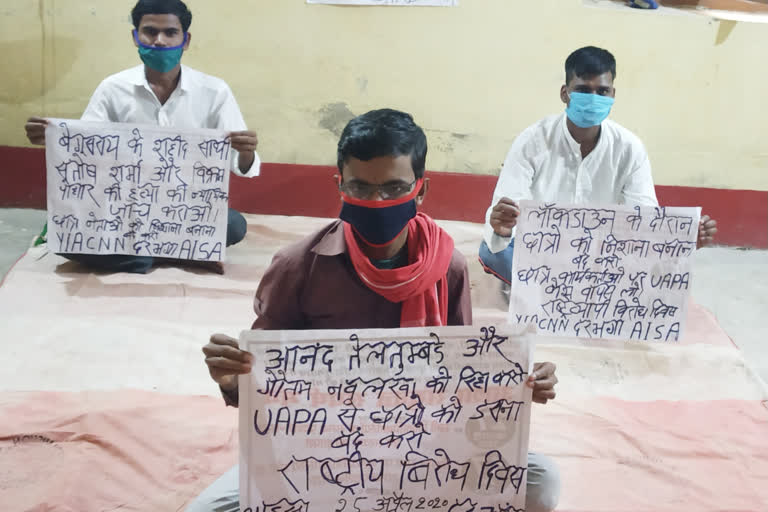 बेगूसराय के शहीद साथी
संतोष शर्मा और विकास
पोद्दार की हत्या की न्यायिक
जाँच कराओ।
छात्र नेताओं को निशाना बनाना
दरभंगा AISA
लॉकडाउन के दौरान
छात्रों को निशाना बनाना
बंद करो
छात्र कार्यकर्ताओं पर UAPA
केस वापस लो
राष्ट्रव्यापी विरोध दिवस
दरभंगा AISA
आनंद तेलतुम्बडे और
गौतम नवलखा को रिहा करो
UAPA से छात्रों को डराना
बंद करो
राष्ट्रीय विरोध दिवस
25 अप्रैल 2020